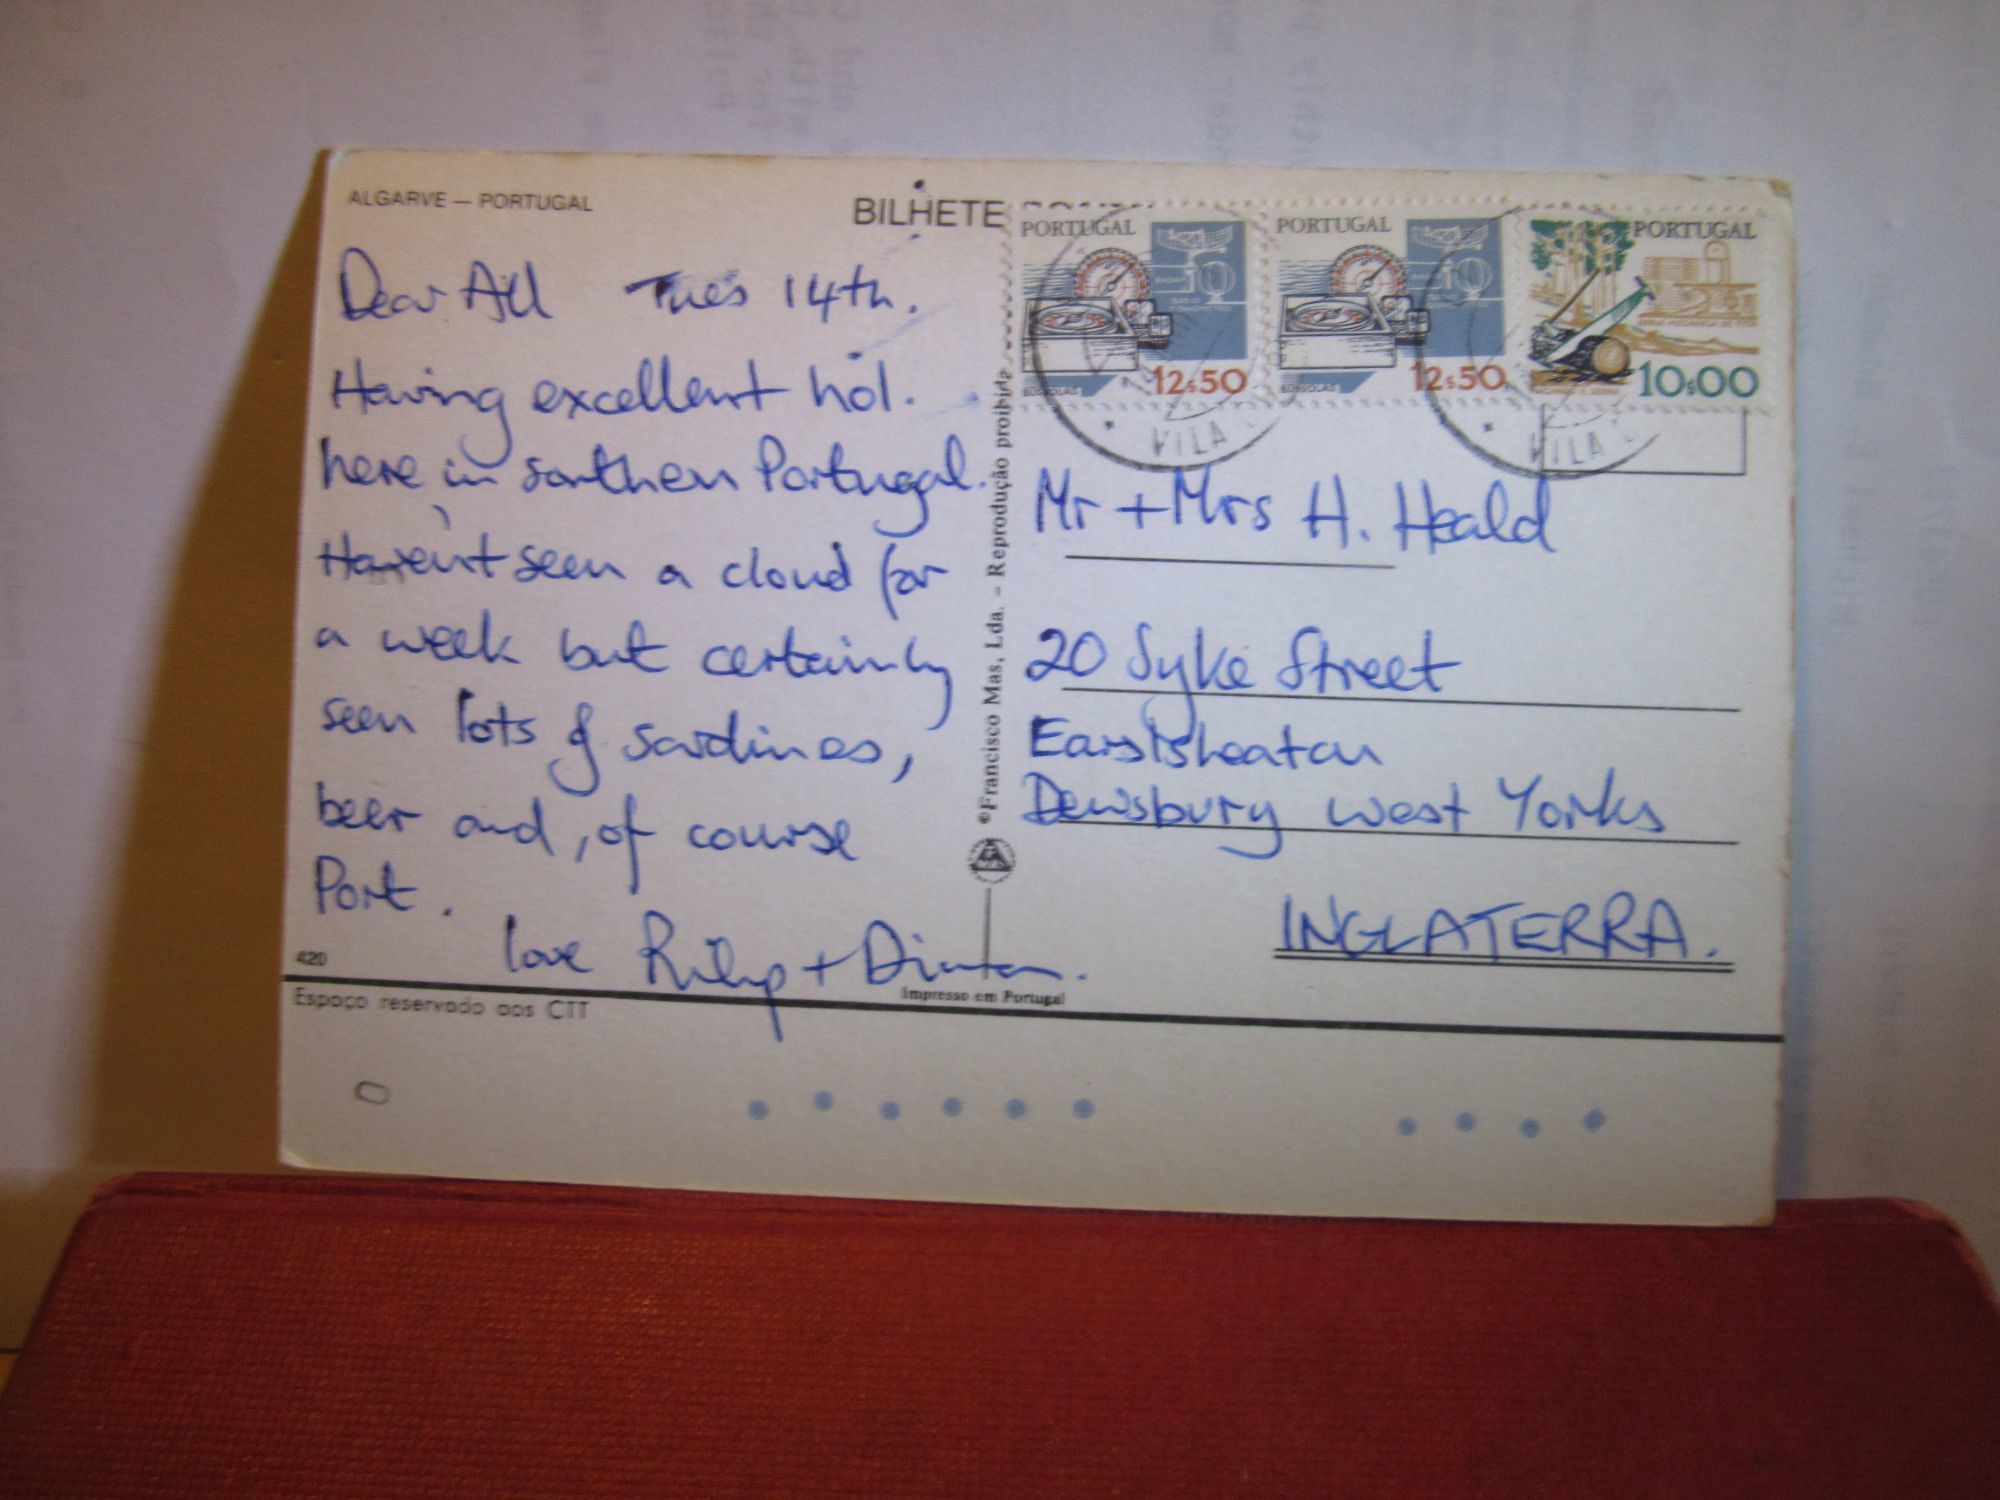 ALGARVE — PORTUGAL
BILHETE
Dear All Tues 14th.
Having excellent hol.
here in southern Portugal.
Haven't seen a cloud for
a week but certainly
seen lots of sardines,
beer and, of course
Port.
love + 
420
Espaço reservado aos CTT
©Francisco Mas, Lda. – Reprodução proibida
Impresso em Portugal
PORTUGAL
BÚSSOLAS
12$50
PORTUGAL
BÚSSOLAS
12$50
PORTUGAL
10$00
VILA
VILA
Mr + Mrs H. Heald
20 Syke Street
Earlsheaton
Dewsbury West Yorks
INGLATERRA.